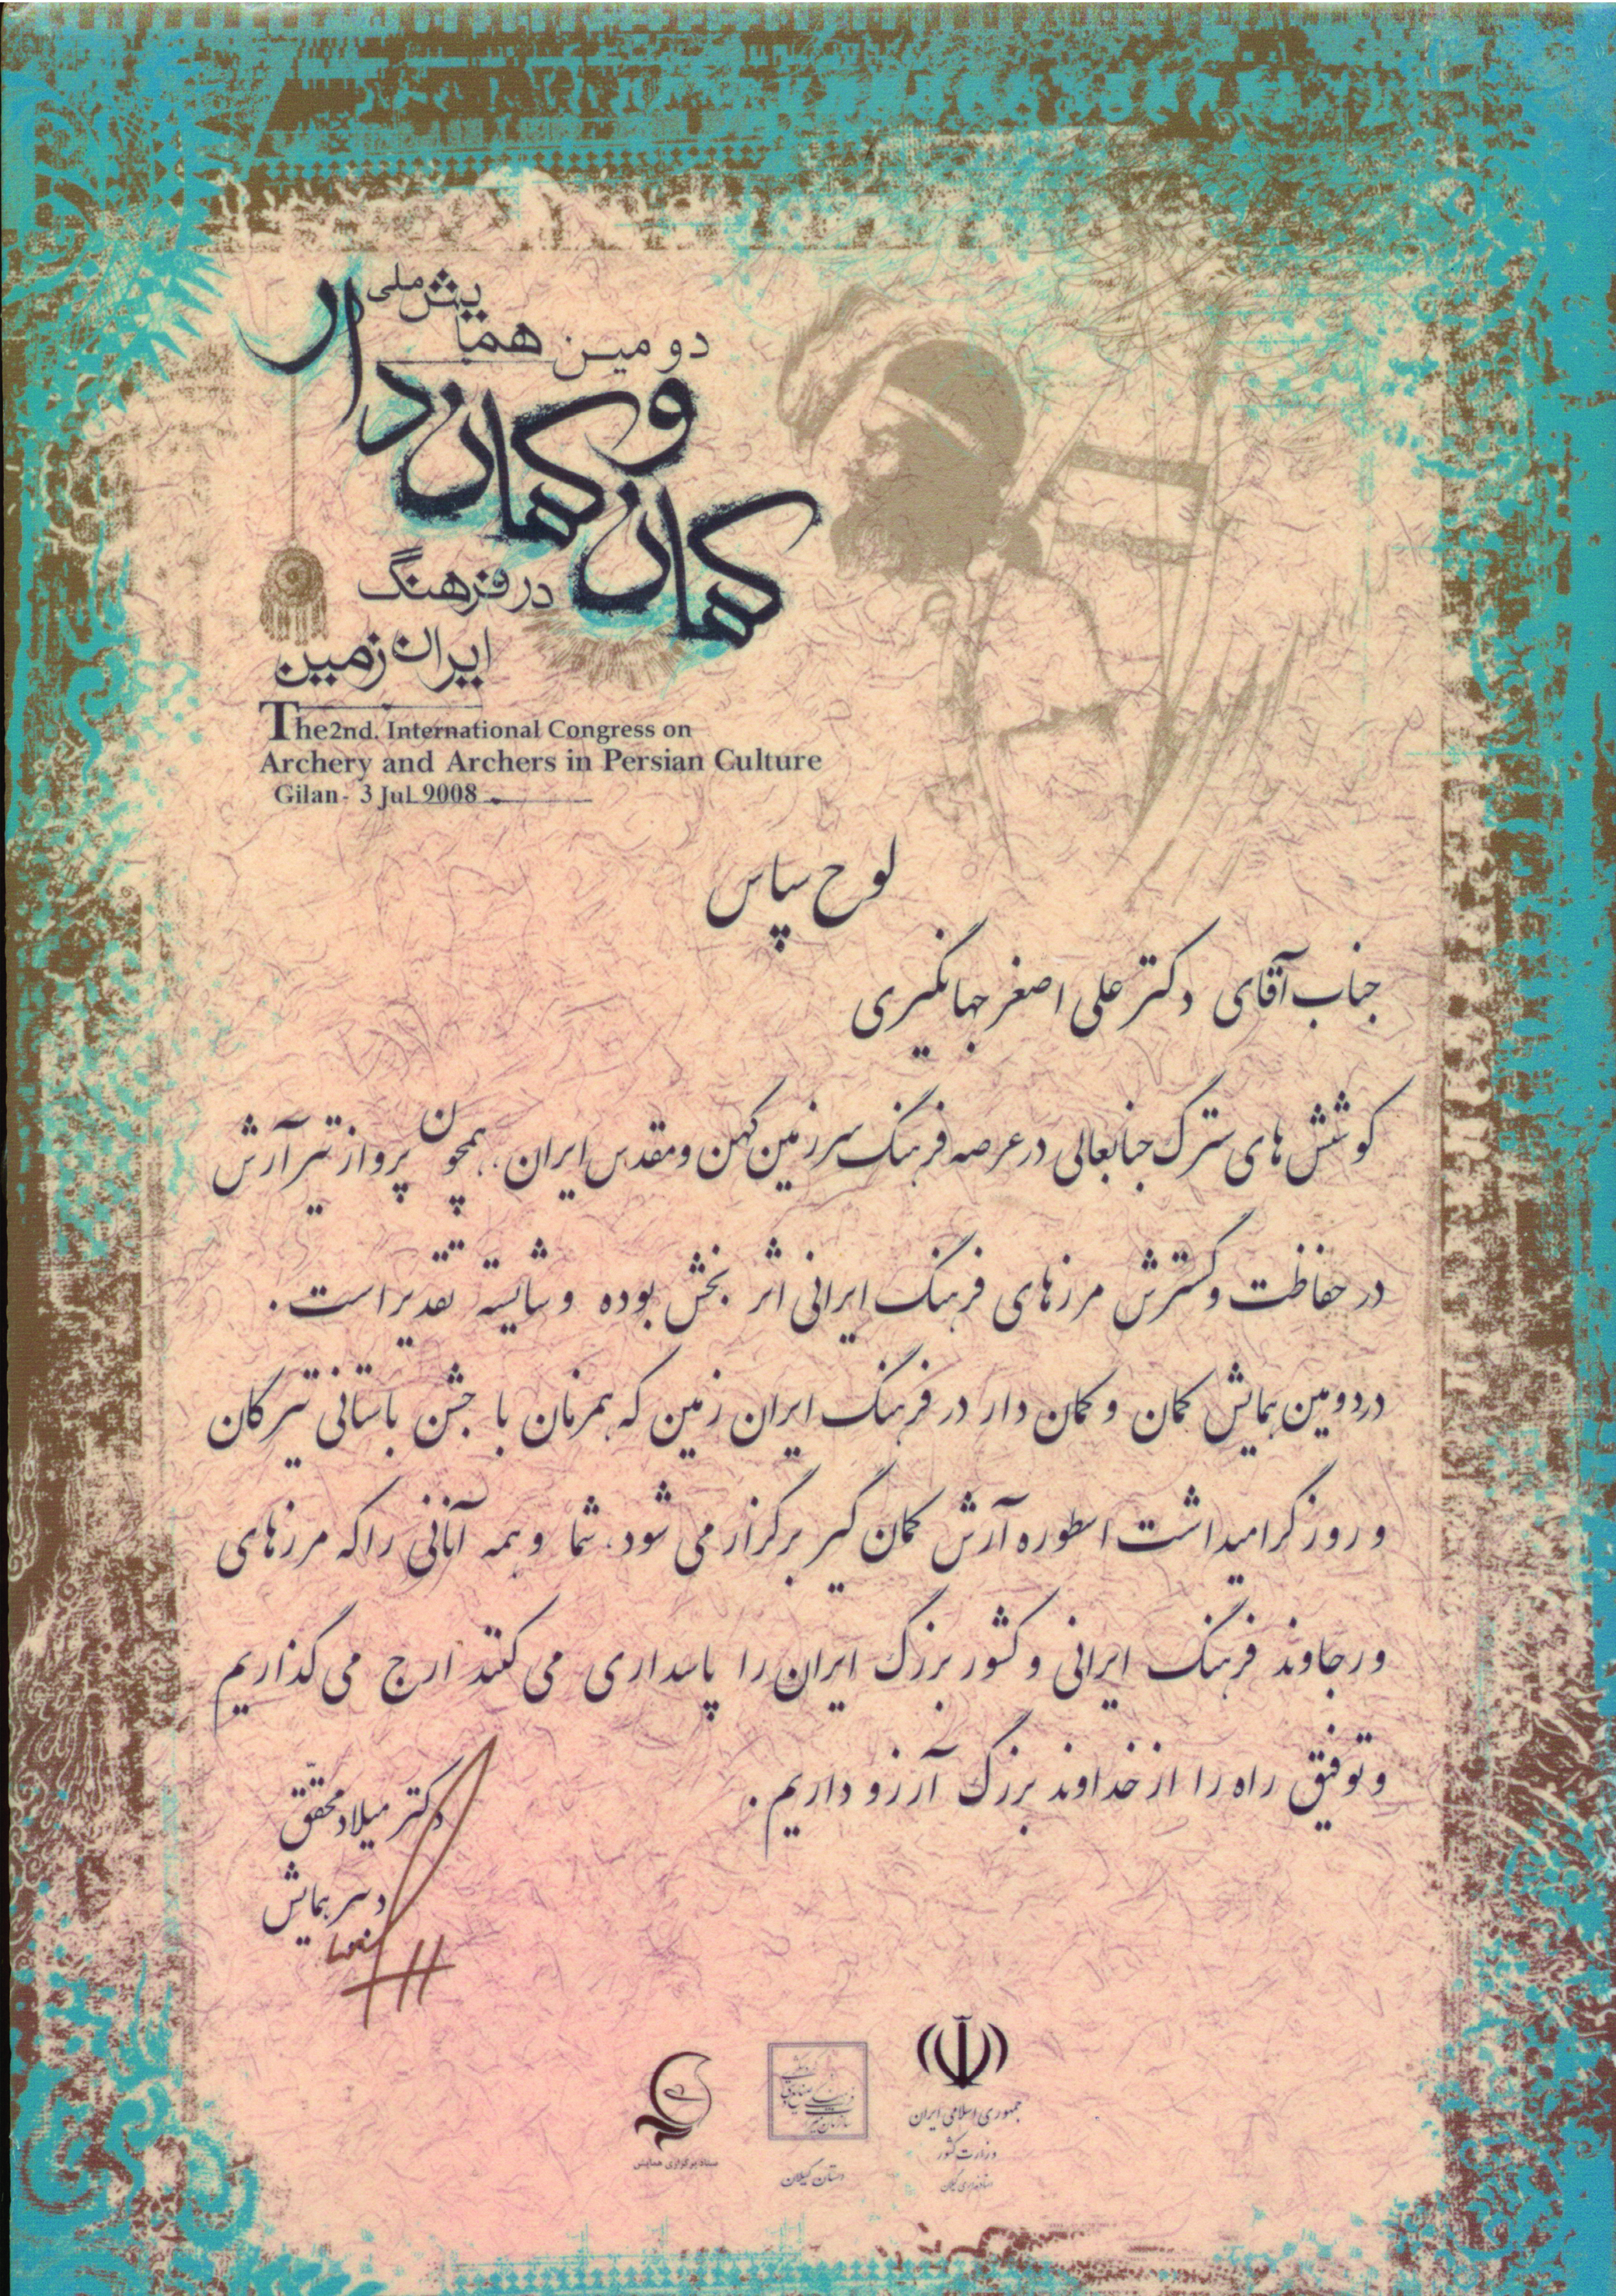 دومین همایش ملی
کمان و کماندار
در فرهنگ
ایران زمین
The2nd. International Congress on
Archery and Archers in Persian Culture
Gilan- 3 Jul 9008
لوح سپاس
جناب آقای دکتر علی اصغر جهانگیری
کوشش های سترگ جنابعالی در عرصه فرهنگ سرزمین کهن و مقدس ایران، همچون پرواز تیر آرش
در حفاظت و گسترش مرزهای فرهنگ ایرانی اثر بخش بوده و شایسته تقدیر است.
در دومین همایش کمان و کمان دار در فرهنگ ایران زمین که همزمان با جشن باستانی تیرگان
و روز گرامیداشت اسطوره آرش کمان گیر برگزار می شود، شما و همه آنانی را که مرزهای
ورجاوند فرهنگ ایرانی و کشور بزرگ ایران را پاسداری می کنند ارج می گذاریم
و توفیق راه را از خداوند بزرگ آرزو داریم.
دکتر میلاد محقق
دبیر همایش
جمهوری اسلامی ایران
وزارت کشور
استانداری گیلان
استان گیلان
ستاد برگزاری همایش